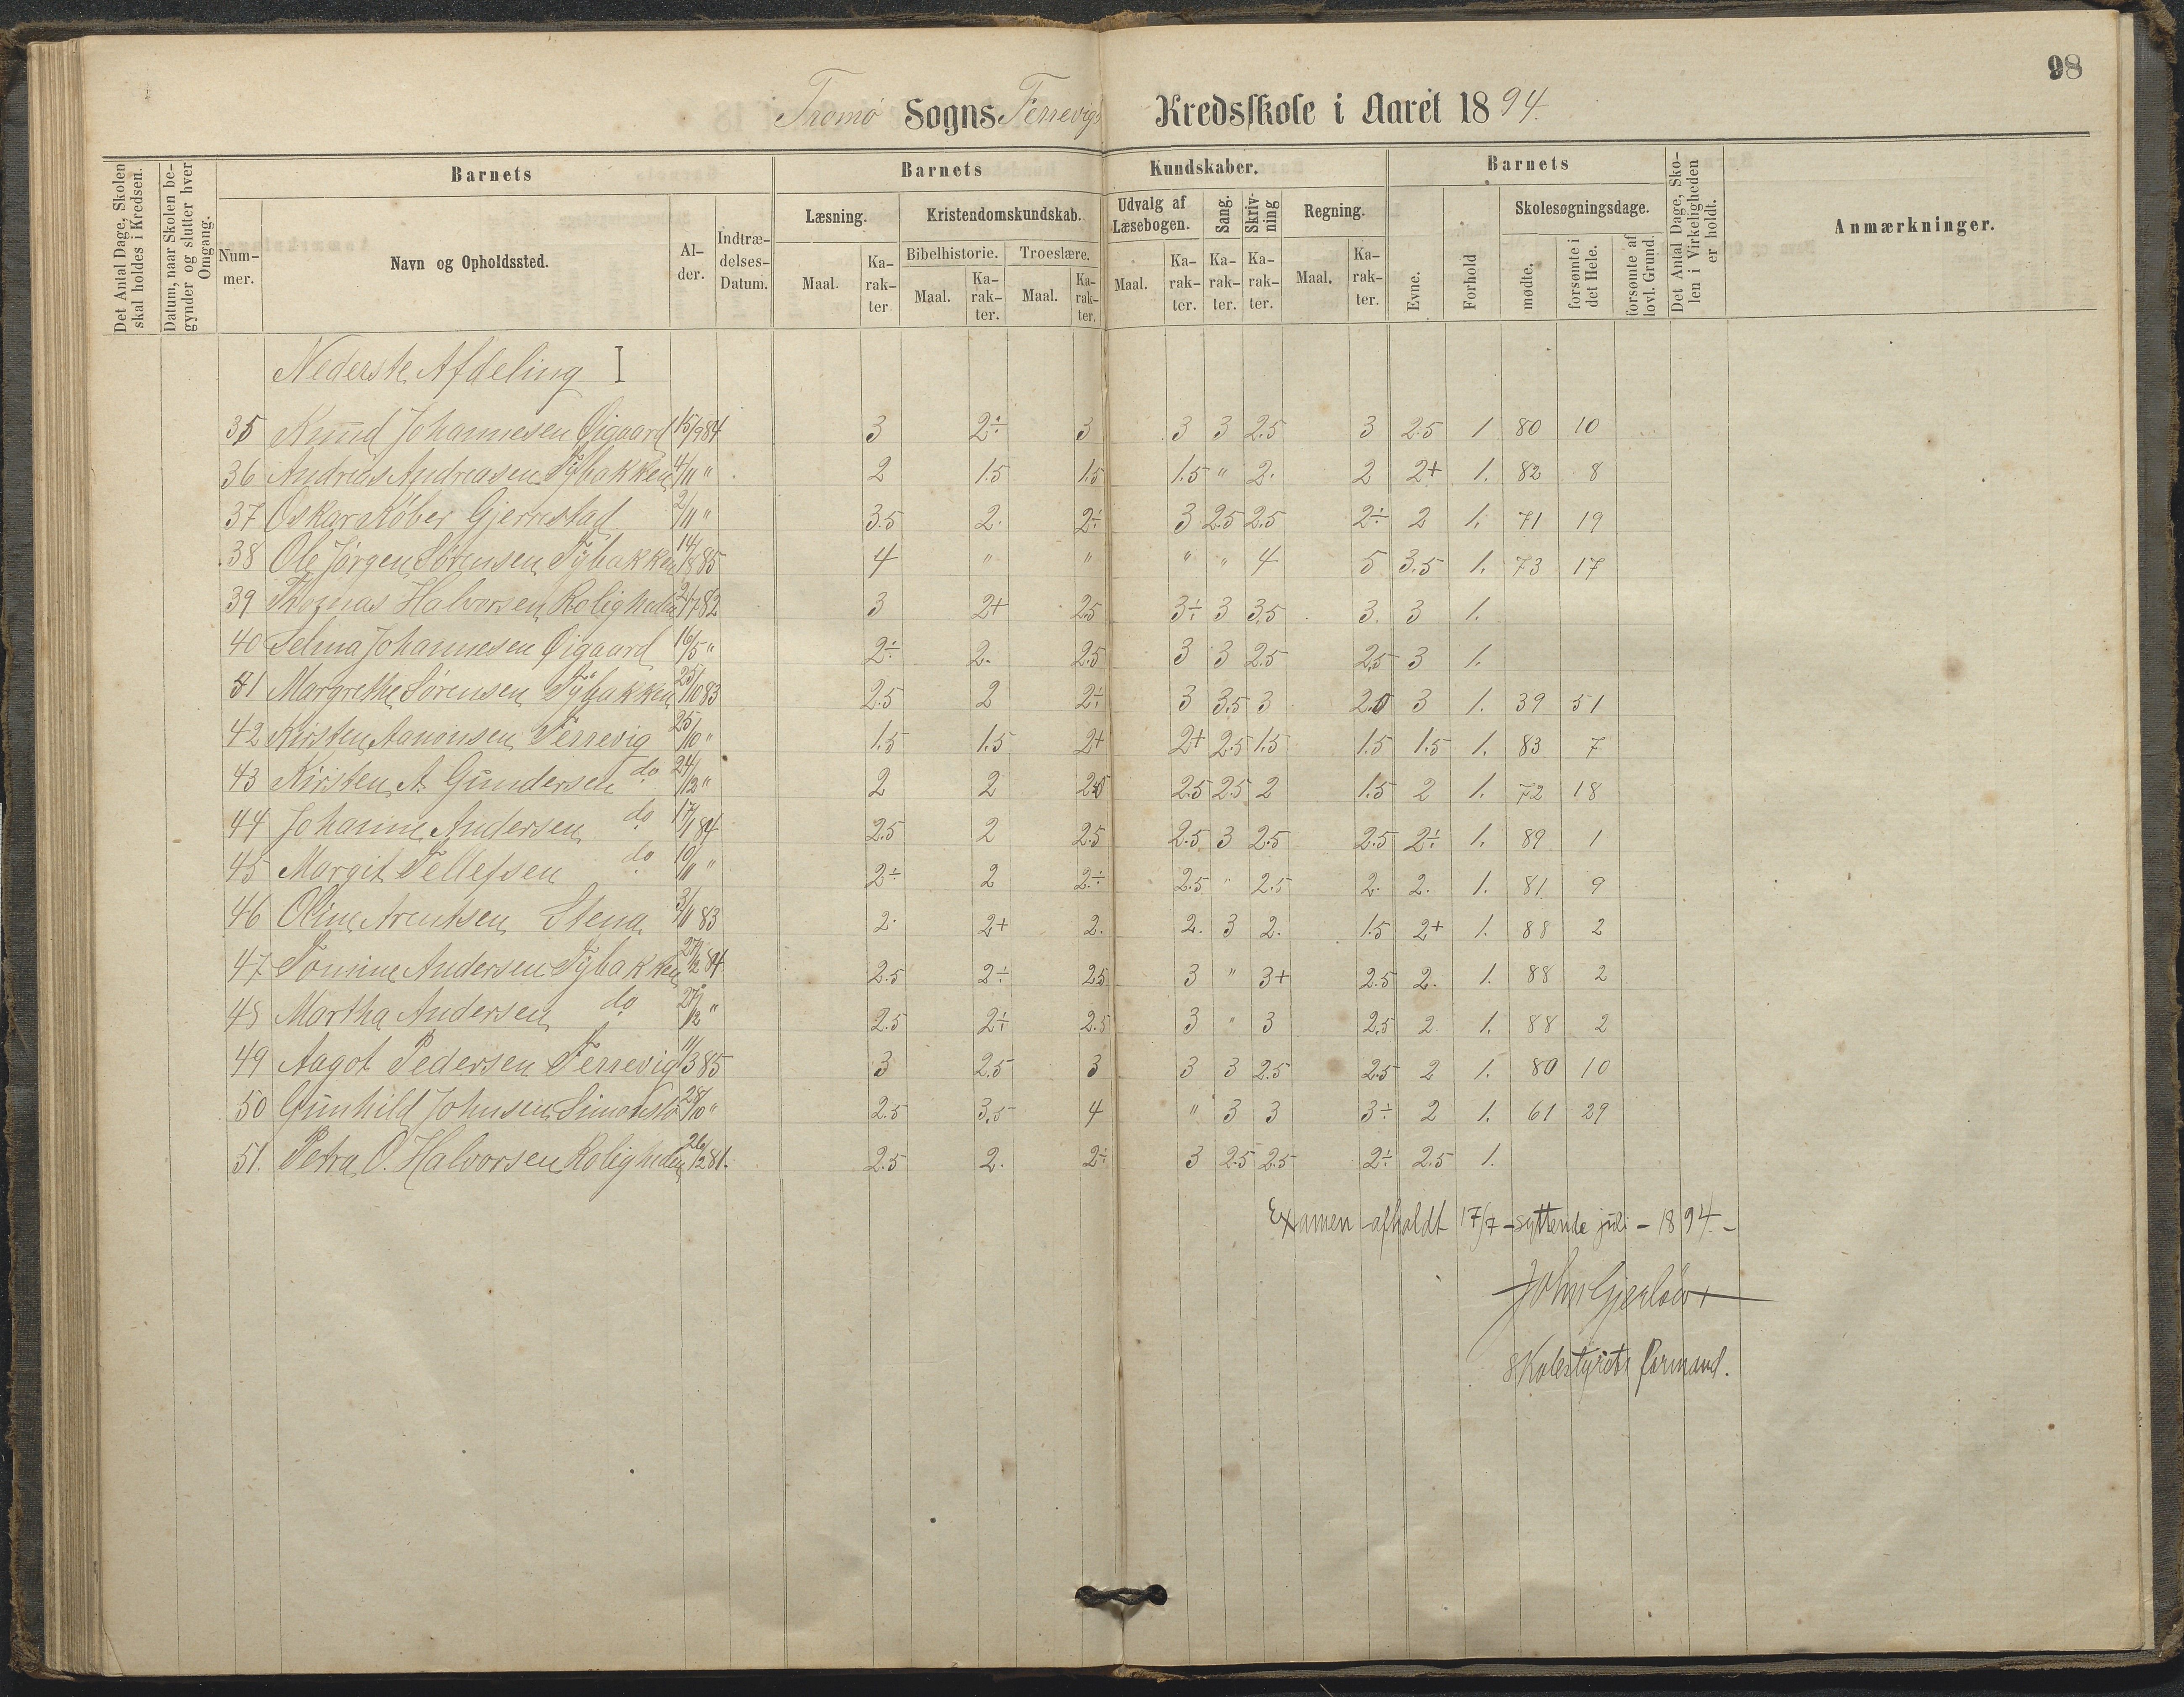 98
Tromø Sogns Ferrevigs Kredsskole i Aaret 1894.
Det Antal Dage, Skolen skal holdes i Kredsen.
Datum, naar Skolen begynder og slutter hver Omgang.
Barnets
Nummer.
Navn og Opholdssted.
Alder.
Indtrædelses-Datum.
Barnets Kundskaber.
Læsning.
Maal.
Karakter
Kristendomskundskab.
Bibelhistorie.
Maal.
Karakter.
Troeslære.
Maal.
Karakter.
Udvalg af Læsebogen.
Maal.
Karakter.
Sang.
Karakter.
Skrivning
Karakter.
Regning.
Maal.
Karakter.
Barnets
Evne.
Forhold
Skolesøgningsdage.
mødte.
forsømte i det Hele.
forsømte af lovl. Grund.
Det Antal Dage, Skolen i Virkeligheden er holdt.
Anmærkninger.
Nederste Afdeling I
35 Knud Johannesen Øigaard 15/9 84 3 2÷ 3 3 3 2.5 3 2.5 1 80 10
36 Andreas Andreasen Tybakken 4/11 " 2 1.5 1.5 1.5 " 2. 2 2+ 1. 82 8
37 Oskar Køber Gjerrestad 2/11 " 3.5 2. 2÷ 3 2.5 2.5 2÷ 2 1. 71 19
38 Ole Jørgen Sørensen Tybakken 14/8 85 4 " " " " 4 5 3.5 1. 73 17
39 Thomas Halvorsen Roligheden 2/7 82 3 2+ 2.5 3÷ 3 3.5 3. 3 1.
40 Selma Johannesen Øigaard 16/5 " 2÷ 2. 2.5 3 3 2.5 2.5 3 1.
41 Margrethe Sørensen Tybakken 25/10 83 2.5 2 2÷ 3 3.5 3 2.5 3 1. 39 51
42 Kirsten Aanonsen Ferrevig 25/10 " 1.5 1.5 2+ 2+ 2.5 1.5 1.5 1.5 1. 83 7
43 Kirsten A. Gundersen do 24/12 " 2 2 2.5 2.5 2.5 2 1.5 2 1. 72 18
44 Johanne Andersen do 17/1 84 2.5 2 2.5 2.5 3 2.5 2.5 2÷ 1. 89 1
45 Margit Tellefsen do 10/11 " 2÷ 2 2÷ 2.5 " 2.5 2. 2. 1. 81 9
46 Oline Arentsen Stena 3/11 83 2. 2+ 2. 2. 3 2. 1.5 2+ 1. 88 2
47 Tomine Andersen Tybakken 27/12 84 2.5 2÷ 2.5 3 " 3+ 2.5 2. 1. 88 2
48 Martha Andersen do 27/12 " 2.5 2÷ 2.5 3 " 3 2.5 2 1. 88 2
49 Aagot Pedersen Ferrevig 11/3 85 3 2.5 3 3 3 2.5 2.5 2 1. 80 10
50 Gunhild Johnsen Simonstø 28/10 " 2.5 3.5 4 " 3 3 3÷ 2 1. 61 29
51. Petra O. Halvorsen Roligheden 26/12 81. 2.5 2. 2÷ 3 2.5 2.5 2÷ 2.5 1.
Examen afholdt 17/7 – syttende juli – 1894. –
John Gjerløw
Skolestyrets formand.